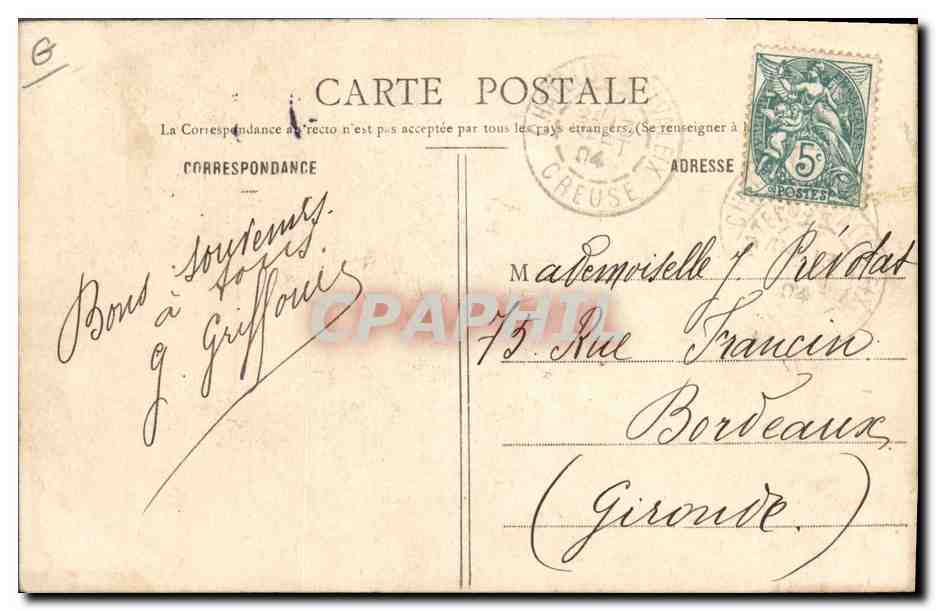 G
CARTE POSTALE
La Correspondance au recto n'est pas acceptée par tous les pays étrangers, (Se renseigner à
CORRESPONDANCE
ADRESSE
5c
POSTES
04
CREUSE
04
Bons souvenirs
à tous.
G. Griffoul
CPAPHIL
Mademoiselle J. Prévotat
75. Rue Francin.
Bordeaux
(Gironde.)